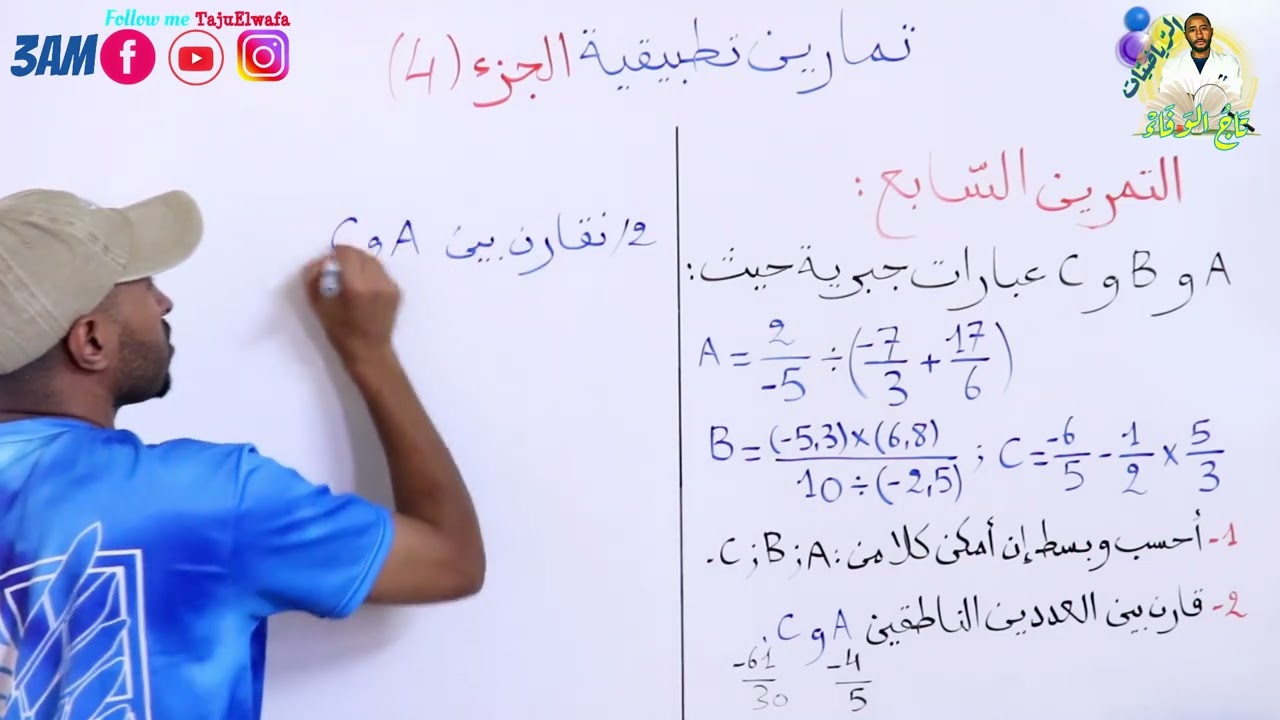 Follow me TajuElwafa
3AM
الرياضيات
تَاجُ الوَفَاءْ
تمارين تطبيقية الجزء (4)
التمرين السّابع :
A و B و C عبارات جبرية حيث:
A = 2/-5 ÷ (-7/3 + 17/6)
B = (-5,3)×(6,8) / 10÷(-2,5) ; C = -6/5 - 1/2 × 5/3
1- أحسب وبسط إن أمكن كلا من: A ; B ; C.
2- قارن بين العددين الناطقين A و C.
-4/5 -61/30
2/ نقارن بين A و C